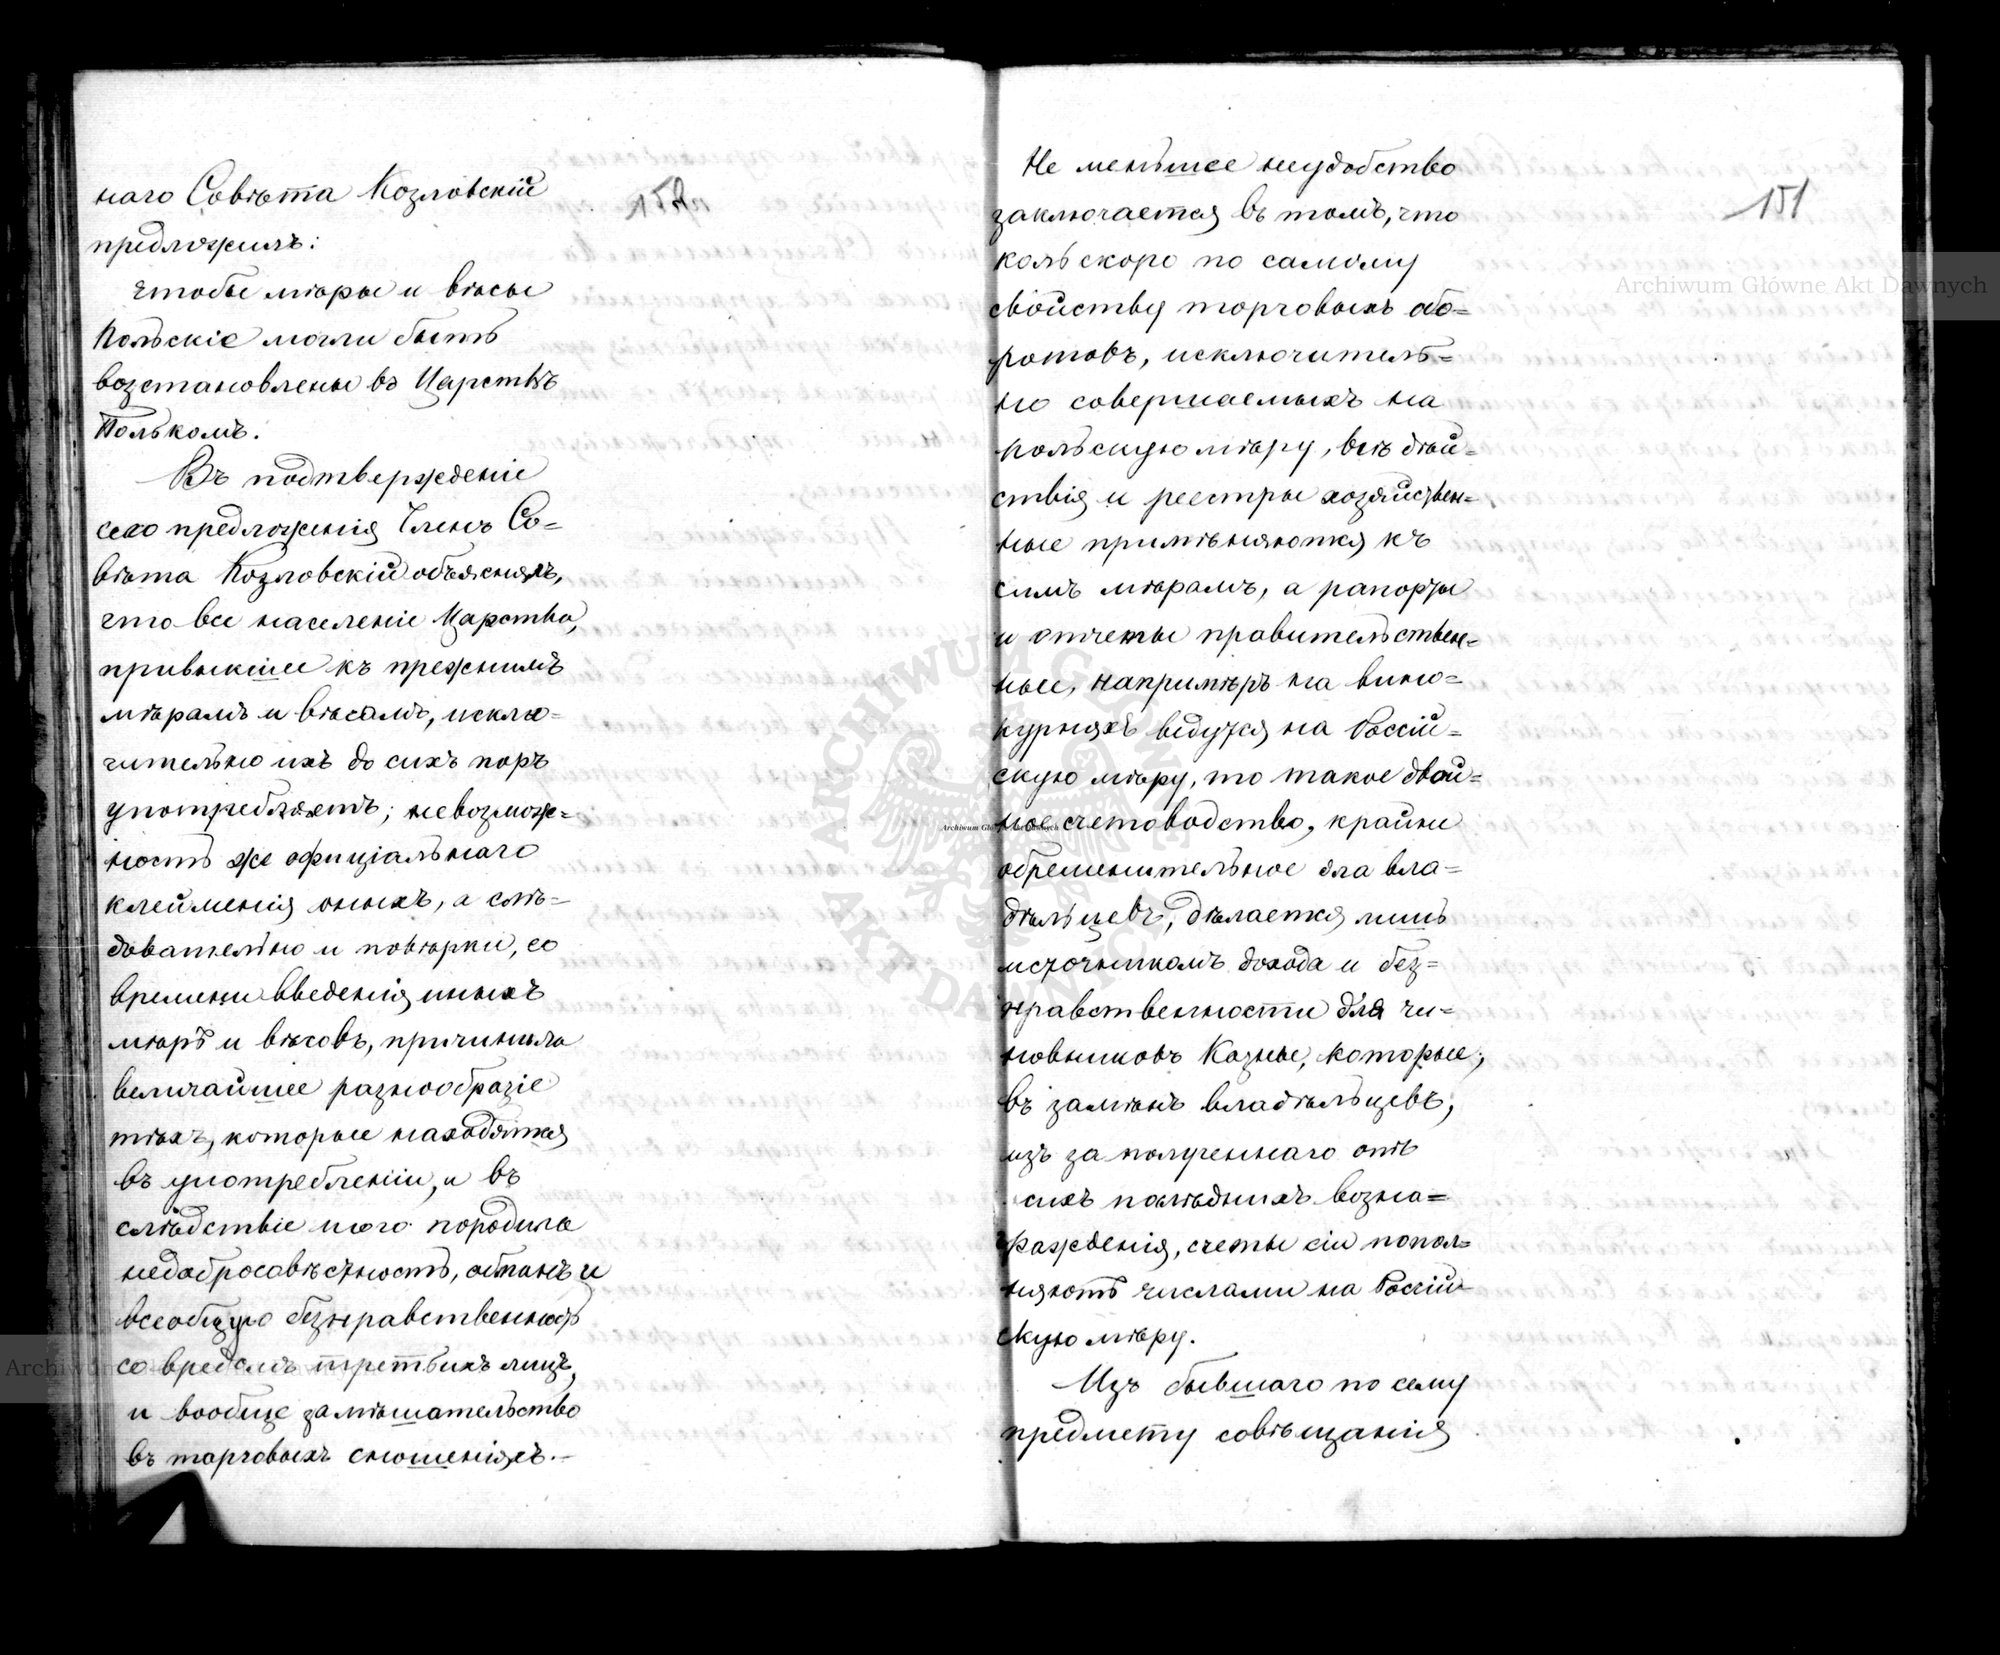 наго Совѣта Козловскій
предложилъ:
чтобы мѣры и вѣсы
Польскіе могли быть
возстановлены въ Царствѣ
Польскомъ.
Въ подтвержденіе
сего предложенія Членъ Со=
вѣта Козловскій объяснялъ,
что все населеніе Царства,
привыкшее къ прежнимъ
мѣрамъ и вѣсамъ, исклю=
чительно ихъ до сихъ поръ
употребляетъ; невозмож=
ность же офиціальнаго
клейменія оныхъ, а слѣ=
довательно и повѣрки, со
времени введенія иныхъ
мѣръ и вѣсовъ, причинила
величайшее разнообразіе
тѣхъ, которые находятся
въ употребленіи, и въ
слѣдствіе того породила
недобросовѣстность, обманъ и
всеобщую безнравственность
со вредомъ третьихъ лицъ,
и вообще замѣшательство
въ торговыхъ сношеніяхъ.—
151
Не меньшее неудобство
заключается въ томъ, что
коль скоро по самому
свойству торговыхъ обо=
ротовъ, исключитель=
но совершаемыхъ на
польскую мѣру, всѣ дѣй=
ствія и реестры хозяйствен=
ные примѣняются къ
симъ мѣрамъ, а рапорты
и отчеты правительствен=
ные, напримѣръ на вино=
курняхъ ведутся на Россій=
скую мѣру, то такое двой=
ное счетоводство, крайне
обременительное для вла=
дѣльцевъ, дѣлается лишь
источникомъ дохода и без=
нравственности для чи=
новниковъ Казны, которые,
въ замѣнъ владѣльцевъ,
изъ за полученнаго отъ
сихъ послѣднихъ возна=
гражденія, счеты сіи попол=
няютъ числами на Россій=
скую мѣру.
Изъ бывшаго по сему
предмету совѣщанія
Archiwum Główne Akt Dawnych
Archiwum Główne Akt Dawnych
ARCHIWUM GŁÓWNE AKT DAWNYCH